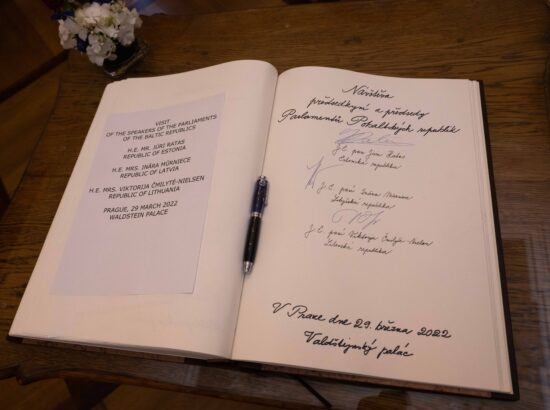 VISIT
OF THE SPEAKERS OF THE PARLIAMENTS
OF THE BALTIC REPUBLICS
H.E. MR. JÜRI RATAS
REPUBLIC OF ESTONIA
H.E. MRS. INĀRA MŪRNIECE
REPUBLIC OF LATVIA
H.E. MRS. VIKTORIJA ČMILYTĖ-NIELSEN
REPUBLIC OF LITHUANIA
PRAGUE, 29 MARCH 2022
WALDSTEIN PALACE
Návštěva
předsedkyní a předsedy
Parlamentů Pobaltských republik
J.E. pan Jüri Ratas
Estonská republika
J.E. paní Ināra Mūrniece
Lotyšská republika
J.E. paní Viktorija Čmilytė-Nielsen
Litevská republika
V Praze dne 29. března 2022
Valdštejnský palác